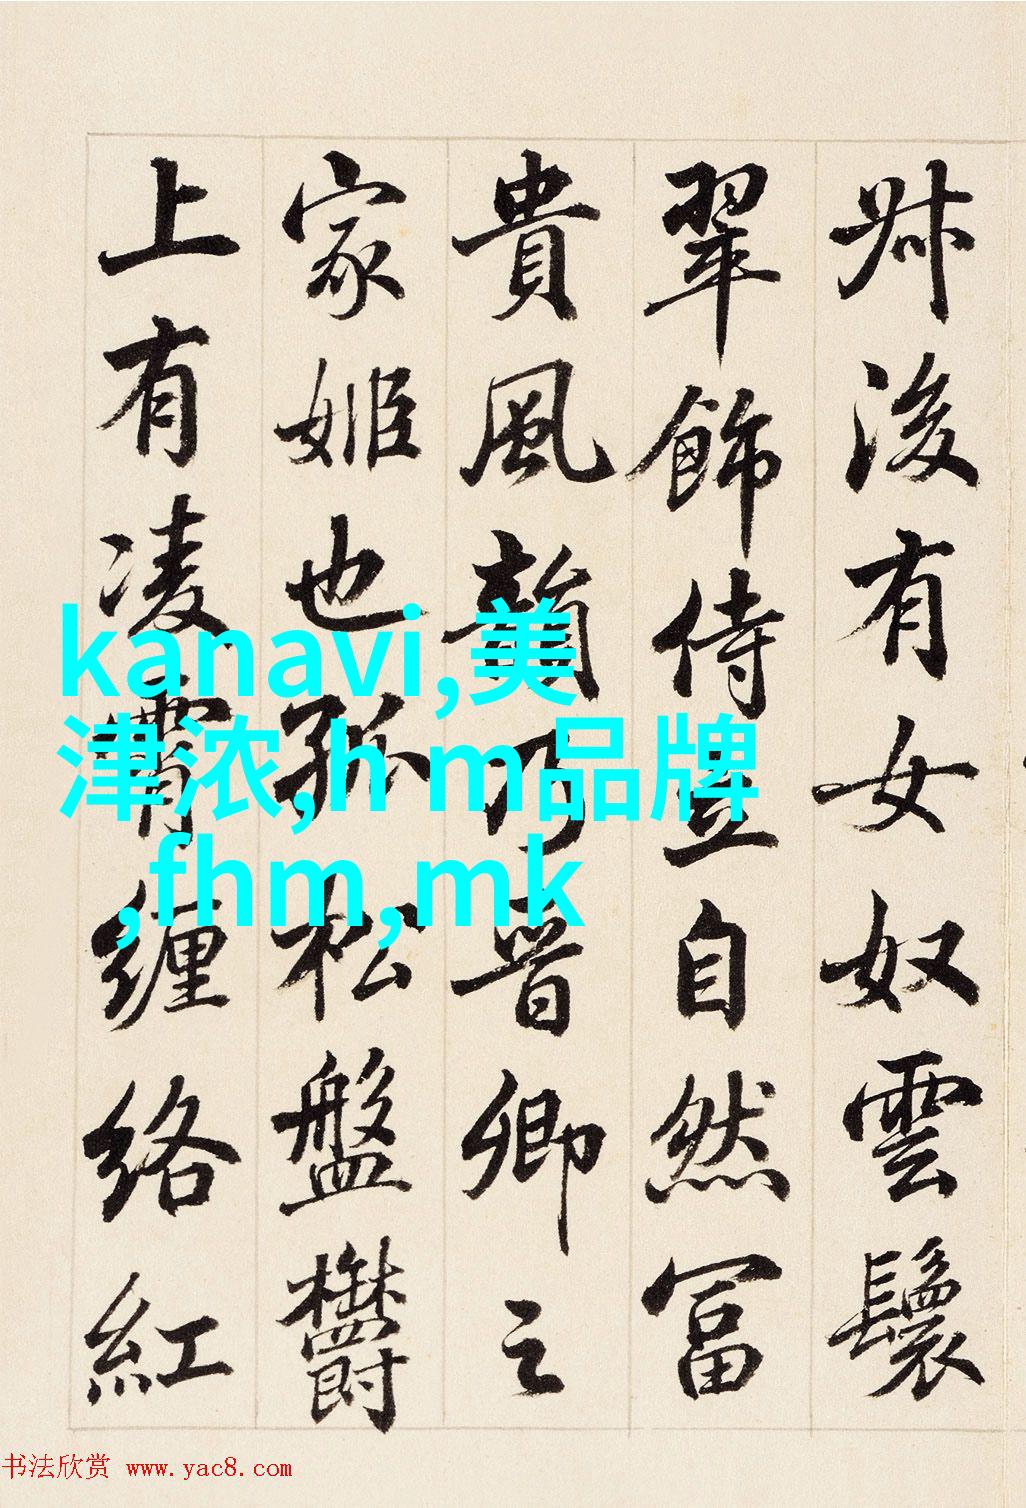 牀後有女奴雲鬟
翠飾侍立自然冨
貴風韻乃晉卿之
家姬也孤松盤欝
上有凌霄纏絡紅
kanavi,美
津浓,h m品牌
,fhm,mk
书法欣赏 www.yac8.com